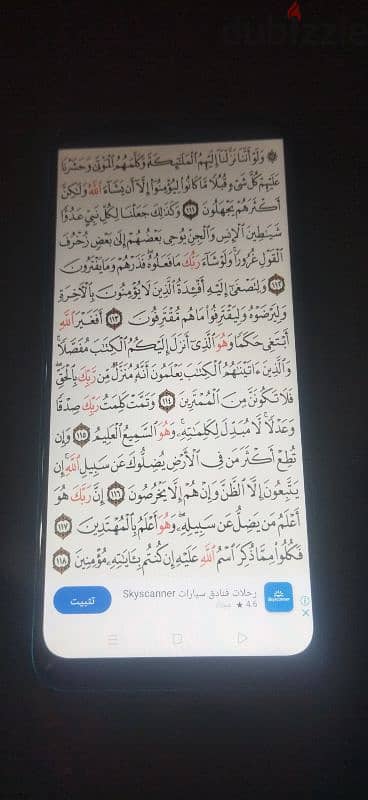 dubizzle
۞ وَلَوۡ أَنَّنَا نَزَّلۡنَآ إِلَيۡهِمُ ٱلۡمَلَٰٓئِكَةَ وَكَلَّمَهُمُ ٱلۡمَوۡتَىٰ وَحَشَرۡنَا
عَلَيۡهِمۡ كُلَّ شَيۡءٖ قُبُلٗا مَّا كَانُواْ لِيُؤۡمِنُوٓاْ إِلَّآ أَن يَشَآءَ ٱللَّهُ وَلَٰكِنَّ
أَكۡثَرَهُمۡ يَجۡهَلُونَ ١١١ وَكَذَٰلِكَ جَعَلۡنَا لِكُلِّ نَبِيٍّ عَدُوّٗا
شَيَٰطِينَ ٱلۡإِنسِ وَٱلۡجِنِّ يُوحِي بَعۡضُهُمۡ إِلَىٰ بَعۡضٖ زُخۡرُفَ
ٱلۡقَوۡلِ غُرُورٗاۚ وَلَوۡ شَآءَ رَبُّكَ مَا فَعَلُوهُۖ فَذَرۡهُمۡ وَمَا يَفۡتَرُونَ
١١٢ وَلِتَصۡغَىٰٓ إِلَيۡهِ أَفۡـِٔدَةُ ٱلَّذِينَ لَا يُؤۡمِنُونَ بِٱلۡأٓخِرَةِ
وَلِيَرۡضَوۡهُ وَلِيَقۡتَرِفُواْ مَا هُم مُّقۡتَرِفُونَ ١١٣ أَفَغَيۡرَ ٱللَّهِ
أَبۡتَغِي حَكَمٗا وَهُوَ ٱلَّذِيٓ أَنزَلَ إِلَيۡكُمُ ٱلۡكِتَٰبَ مُفَصَّلٗاۚ
وَٱلَّذِينَ ءَاتَيۡنَٰهُمُ ٱلۡكِتَٰبَ يَعۡلَمُونَ أَنَّهُۥ مُنَزَّلٞ مِّن رَّبِّكَ بِٱلۡحَقِّۖ
فَلَا تَكُونَنَّ مِنَ ٱلۡمُمۡتَرِينَ ١١٤ وَتَمَّتۡ كَلِمَتُ رَبِّكَ صِدۡقٗا
وَعَدۡلٗاۚ لَّا مُبَدِّلَ لِكَلِمَٰتِهِۦۚ وَهُوَ ٱلسَّمِيعُ ٱلۡعَلِيمُ ١١٥ وَإِن
تُطِعۡ أَكۡثَرَ مَن فِي ٱلۡأَرۡضِ يُضِلُّوكَ عَن سَبِيلِ ٱللَّهِۚ إِن
يَتَّبِعُونَ إِلَّا ٱلظَّنَّ وَإِنۡ هُمۡ إِلَّا يَخۡرُصُونَ ١١٦ إِنَّ رَبَّكَ هُوَ
أَعۡلَمُ مَن يَضِلُّ عَن سَبِيلِهِۦۖ وَهُوَ أَعۡلَمُ بِٱلۡمُهۡتَدِينَ ١١٧
فَكُلُواْ مِمَّا ذُكِرَ ٱسۡمُ ٱللَّهِ عَلَيۡهِ إِن كُنتُم بِـَٔايَٰتِهِۦ مُؤۡمِنِينَ ١١٨
رحلات فنادق سيارات Skyscanner
4.6 ★
Skyscanner
تثبيت